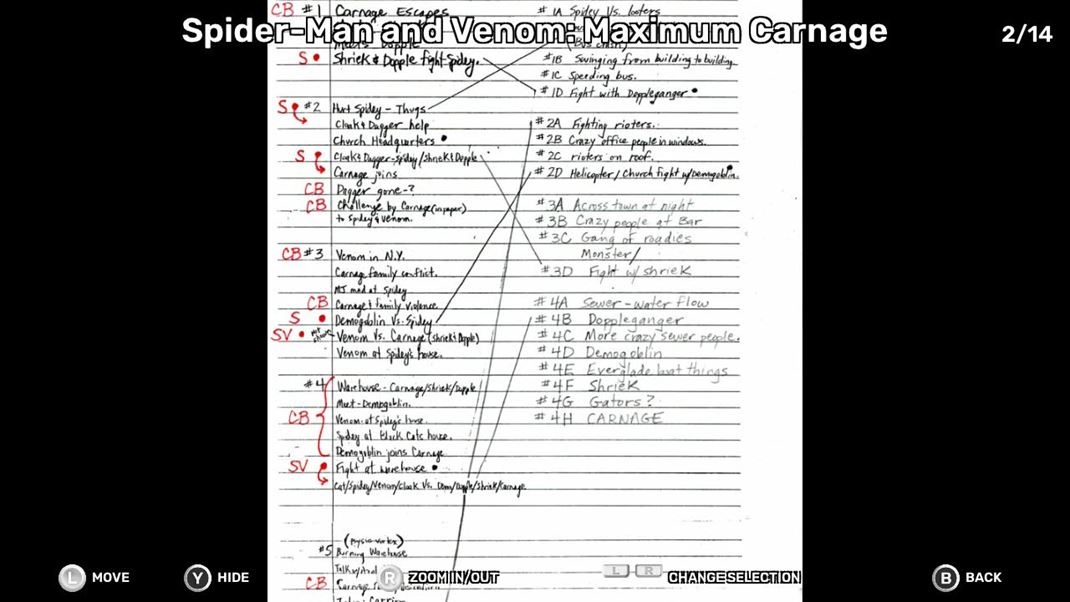 Spider-Man and Venom: Maximum Carnage
2/14
CB #1 Carnage Escapes
S • Shriek & Dopple fight Spidey.
S • #2 Hurt Spidey - Thugs
Cloak & Dagger help
Church Headquarters •
S • Cloak & Dagger - Spidey/Shriek & Dopple
Carnage joins
CB Dagger gone-?
CB Challenge by Carnage (in paper)
to Spidey & Venom.
CB #3 Venom in N.Y.
Carnage family conflict.
MJ mad at Spidey
CB Carnage & family violence.
S • Demogoblin Vs. Spidey
SV • Venom Vs. Carnage (Shriek & Dopple)
Venom at Spidey's house.
#4 Warehouse - Carnage/Shriek/Dopple
Meet - Demogoblin.
CB Venom at Spidey's house.
Spidey at Black Cats house.
Demogoblin joins Carnage
SV • Fight at Warehouse •
Cat/Spidey/Venom/Cloak Vs. Demo/Dopple/Shriek/Carnage
#5 Burning Warehouse
CB
#1A Spidey Vs. looters
(Bus crash)
#1B Swinging from building to building.
#1C Speeding bus.
#1D Fight with Doppleganger •
#2A Fighting rioters.
#2B Crazy office people in windows.
#2C rioters on roof.
#2D Helicopter/Church fight w/Demogoblin.
#3A Across town at night
#3B Crazy people at Bar
#3C Gang of roadies
Monster/
#3D Fight w/ shriek
#4A Sewer - water flow
#4B Doppleganger
#4C More crazy sewer people.
#4D Demogoblin
#4E Everglade boat things
#4F Shriek
#4G Gators?
#4H CARNAGE
L MOVE
Y HIDE
R ZOOM IN/OUT
L R CHANGE SELECTION
B BACK